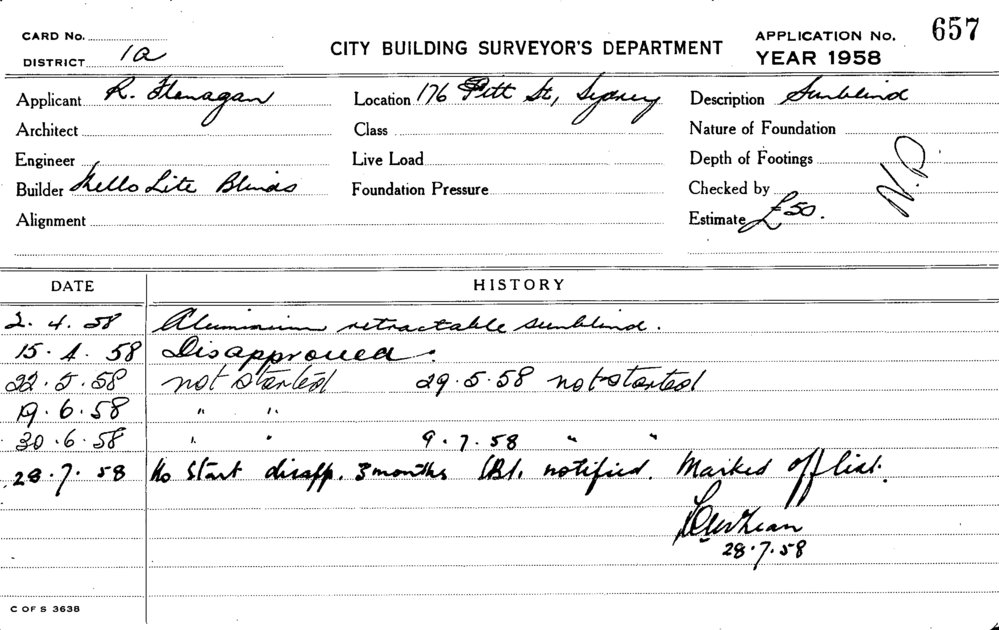 CARD No.
DISTRICT 1a
CITY BUILDING SURVEYOR'S DEPARTMENT
APPLICATION No. 657
YEAR 1958
Applicant R. Flanagan
Location 176 Pitt St, Sydney
Description Sunblind
Architect
Class
Nature of Foundation
Engineer
Live Load
Depth of Footings
Builder Lite Blinds
Foundation Pressure
Checked by
N.D
Alignment
Estimate £50.
DATE HISTORY
2. 4. 58 Aluminium retractable sunblind.
15. 4. 58 Disapproved.
22. 5. 58 not started 29.5.58 not started
19. 6. 58 " "
30. 6. 58 " " 9. 7. 58 " "
28. 7. 58 No start disapp. 3 months notified. Marked off list.
28.7.58
C OF S 3638